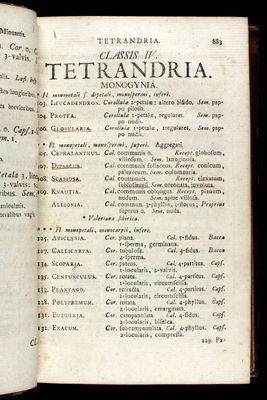 TETRANDRIA. 883
CLASSIS IV.
TETRANDRIA.
MONOGYNIA.
* Fl. monopetali s. dipetali, monospermi, inferi.
103. LEUCADENDRON. Corollulæ 2-petalæ: altero bifido. Sem. pap-
po piloso.
104. PROTEA. Corollulæ 1-petalæ, regulares. Sem. pap-
po nudo.
GLOBULARIA. Corollulæ 1-petalæ, irregulares. Sem. pap-
po nudo.
* Fl. monopetali, monospermi, superi. Aggregati.
CEPHALANTHUS. Cal. communis 0. Recept. globosum,
villosum. Sem. lanuginosa.
107. DIPSACUS. Cal. communis foliaceus. Recept. conicum,
paleaceum. Sem. columnaria.
108. SCABIOSA. Cal. communis. Recept. elevatum,
subfoliaceum. Sem. coronata, involuta.
109. KNAUTIA. Cal. communis oblongus. Recept. planum,
nudum. Sem. apice villosa.
ALLIONIA. Cal. commun. 3-phyllus, 3-florus; Proprius
superus 0. Sem. nuda.
* Valeriana sibirica.
* * * Fl. monopetali, monocarpii, inferi.
125. AVICENNIA. Cor. plana. Cal. 5-fidus. Bacca
1-sperma, germinans.
127. CALLICARPA. Cor. tubulosa. Cal. 4-fidus. Bacca
4-sperma.
134. SCOPARIA. Cor. patens. Cal. 4-partitus. Caps.
1-locularis, 2-valvis.
137. CENTUNCULUS. Cor. rotata. Cal. 4-partitus. Caps.
1-locularis, circumscissa.
133. PLANTAGO. Cor. refracta. Cal. 4-partitus. Caps.
2-locularis, circumscissa.
128. POLYPREMUM. Cor. rotata. Cal. 4-phyllus. Caps.
2-locularis, emarginata.
131. BUDDLEJA. Cor. campanulata. Cal. 4-fidus. Caps.
2-locularis, bisulca.
132. EXACUM. Cor. subcampanulata. Cal. 4-phyllus. Caps.
2-locularis, compressa.
129. PE-